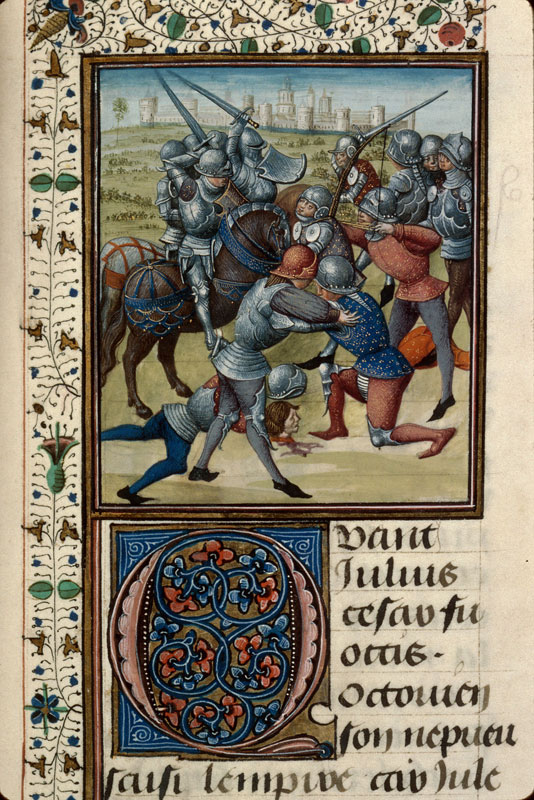 Quant
Iulius
cesar fu
occis.
Octouien
son nepueu
saisi lempire car Jule